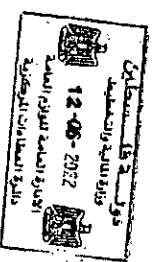 دولة فلسطين
وزارة المالية والتخطيط
12-06-2022
الإدارة العامة للوازم العامة
دائرة العطاءات المركزية